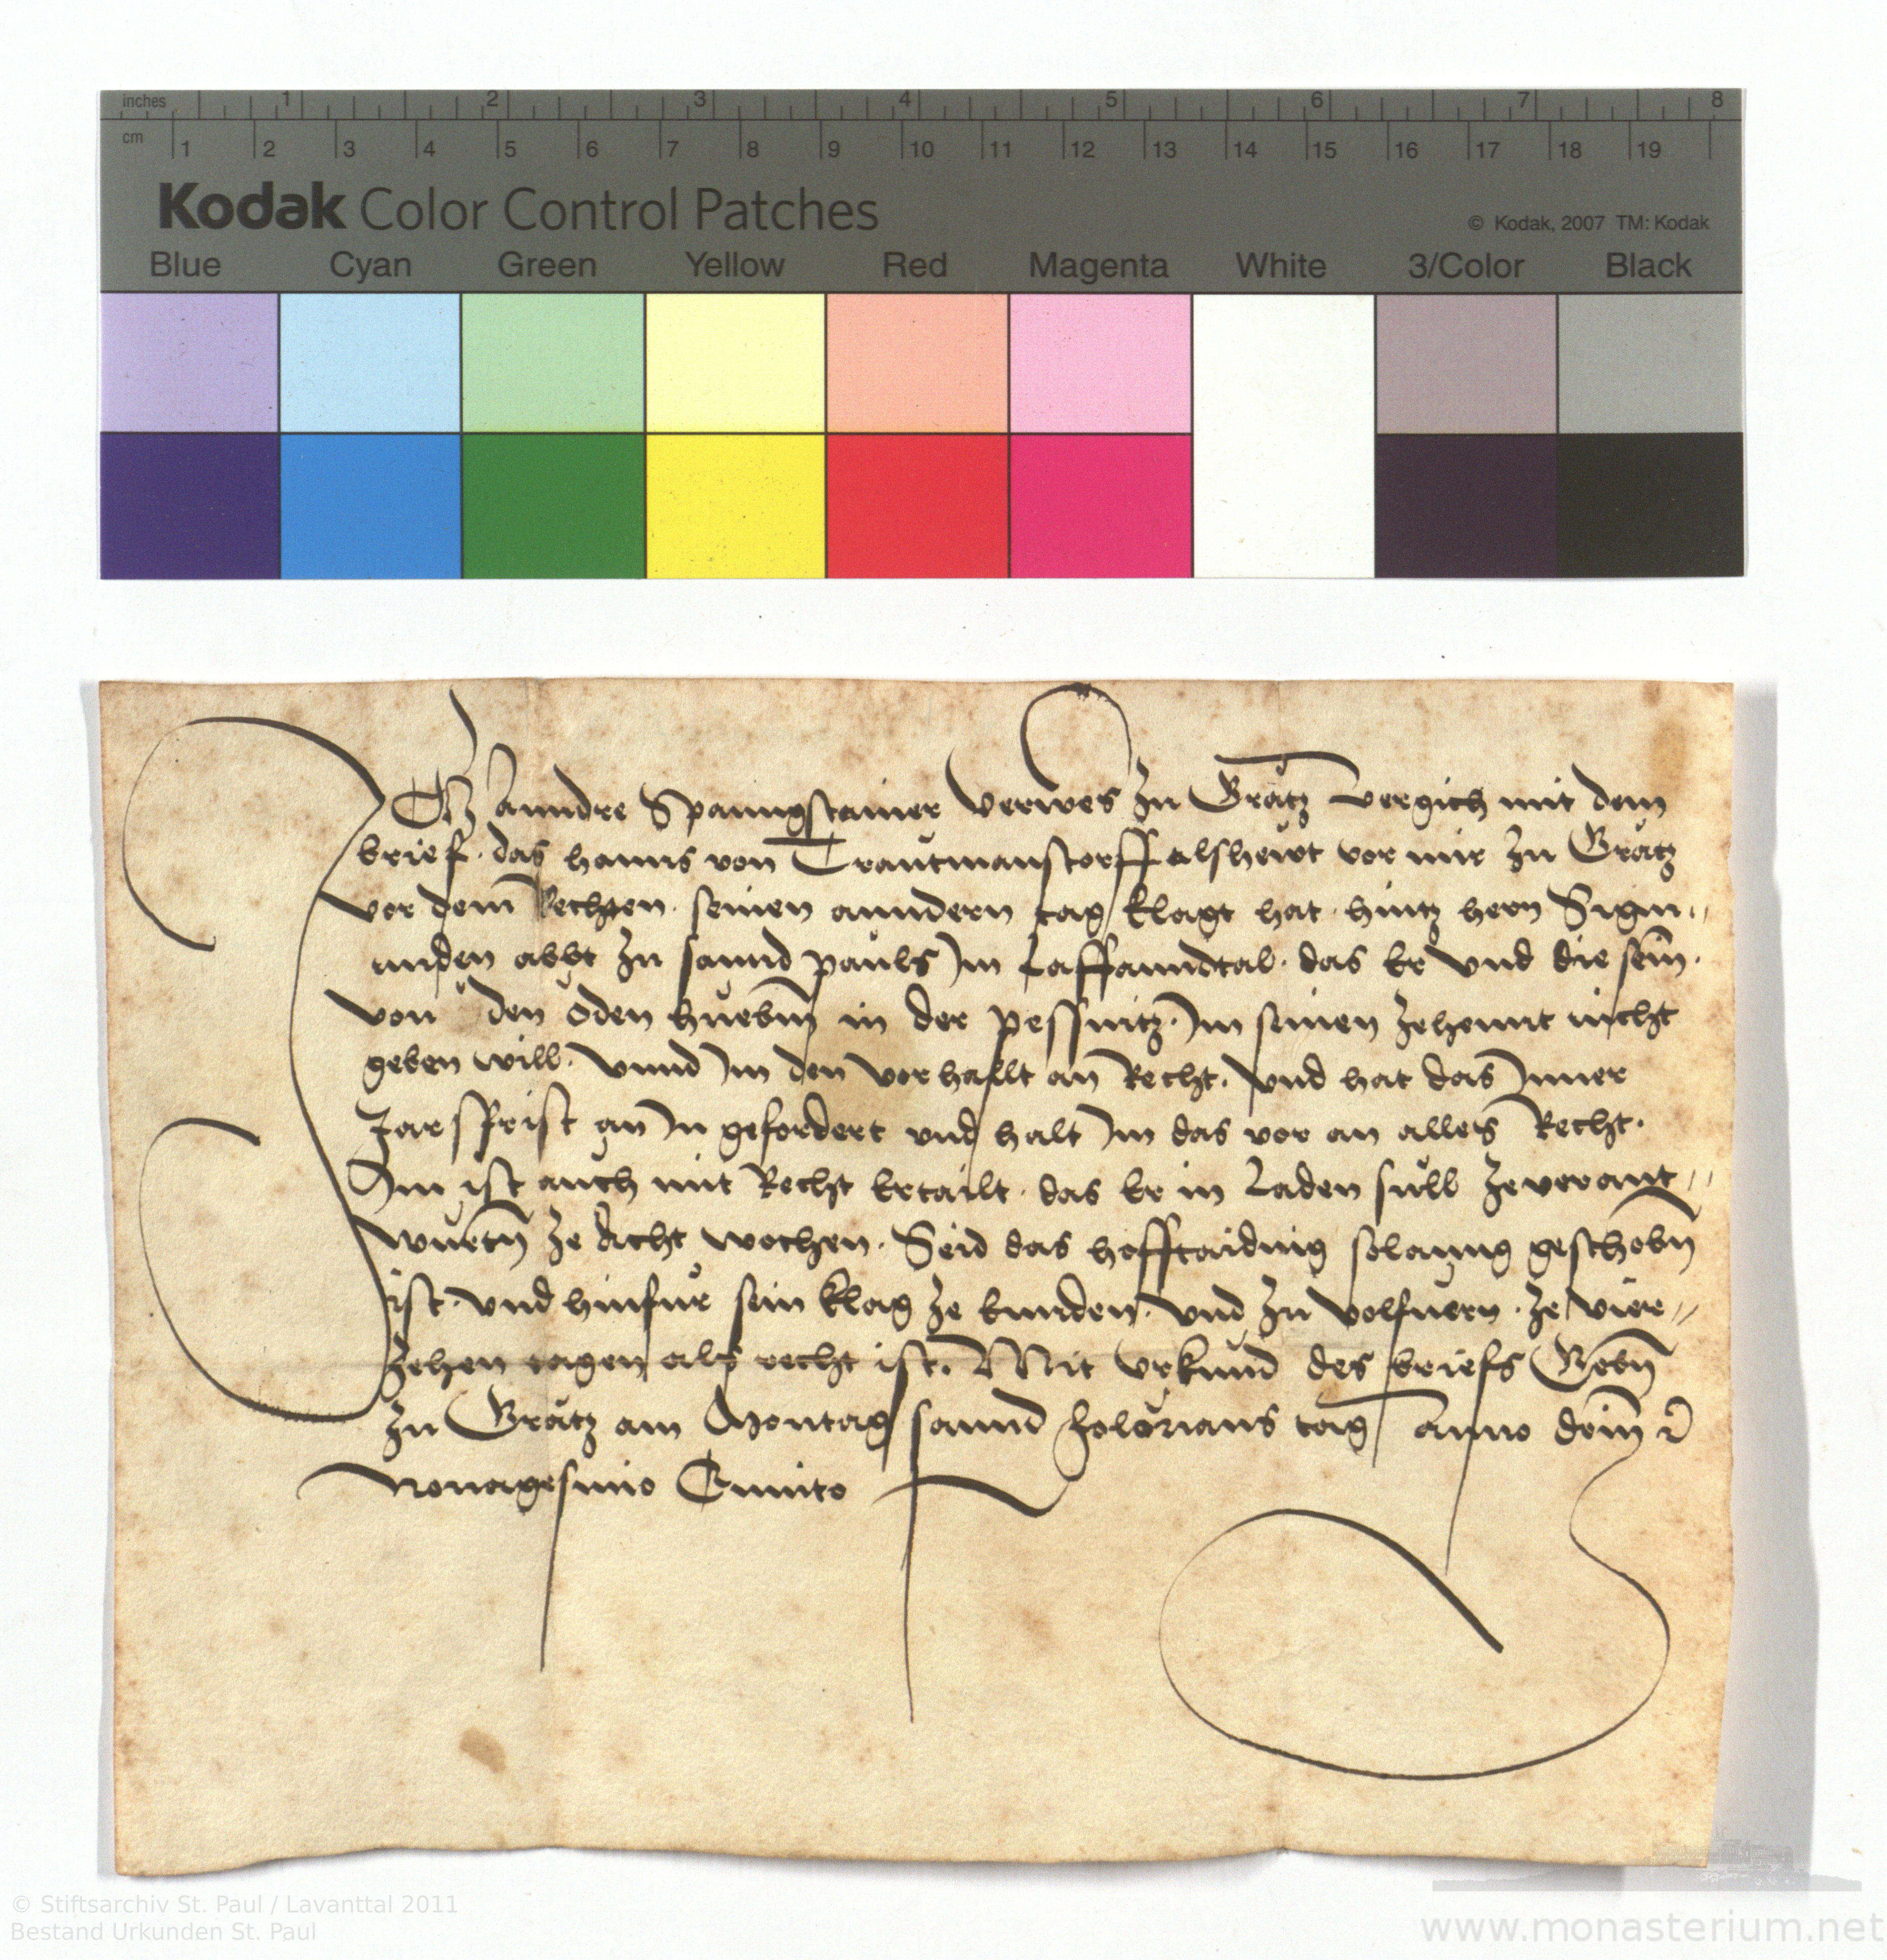 inches 1 2 3 4 5 6 7 8
cm 1 2 3 4 5 6 7 8 9 10 11 12 13 14 15 16 17 18 19
Kodak Color Control Patches
© Kodak, 2007 TM: Kodak
Blue Cyan Green Yellow Red Magenta White 3/Color Black
Ich Anndre Spanngstainer Verwes zu Grätz vergich mit dem
brief. das hanns von Trautmanstorff alsheẅt vor mir zu Grätz
vor dem Rechten. seinen anndern tag klagt hat. hintz hern Sigm„
unden abbt zu sannd pauls Im Laffanndtal. das Er vnd die sein.
von den öden huebm in der pessnitz. Im seinen zehennt nicht
geben will. vnnd Im den vorhallt an Recht. vnd hat das Inner
Jarsfrist an In gefordert vnd halt Im das vor an alles Recht.
Im ist auch mit Recht Ertailt. das Er in Laden sull zeverant„
wurtn ze Acht wochen. Seid das hofftaiding solanng geschobn
ist. vnd hinfür sein klag ze kunden. vnd zu volfuern. ze vier„
zehen tagen als recht ist. Mit vrkund des briefs Gebn
zu Grätz am Montag sannd Florians tag Anno domi
Nonagesimo Quinto
© Stiftsarchiv St. Paul / Lavanttal 2011
Bestand Urkunden St. Paul
www.monasterium.net